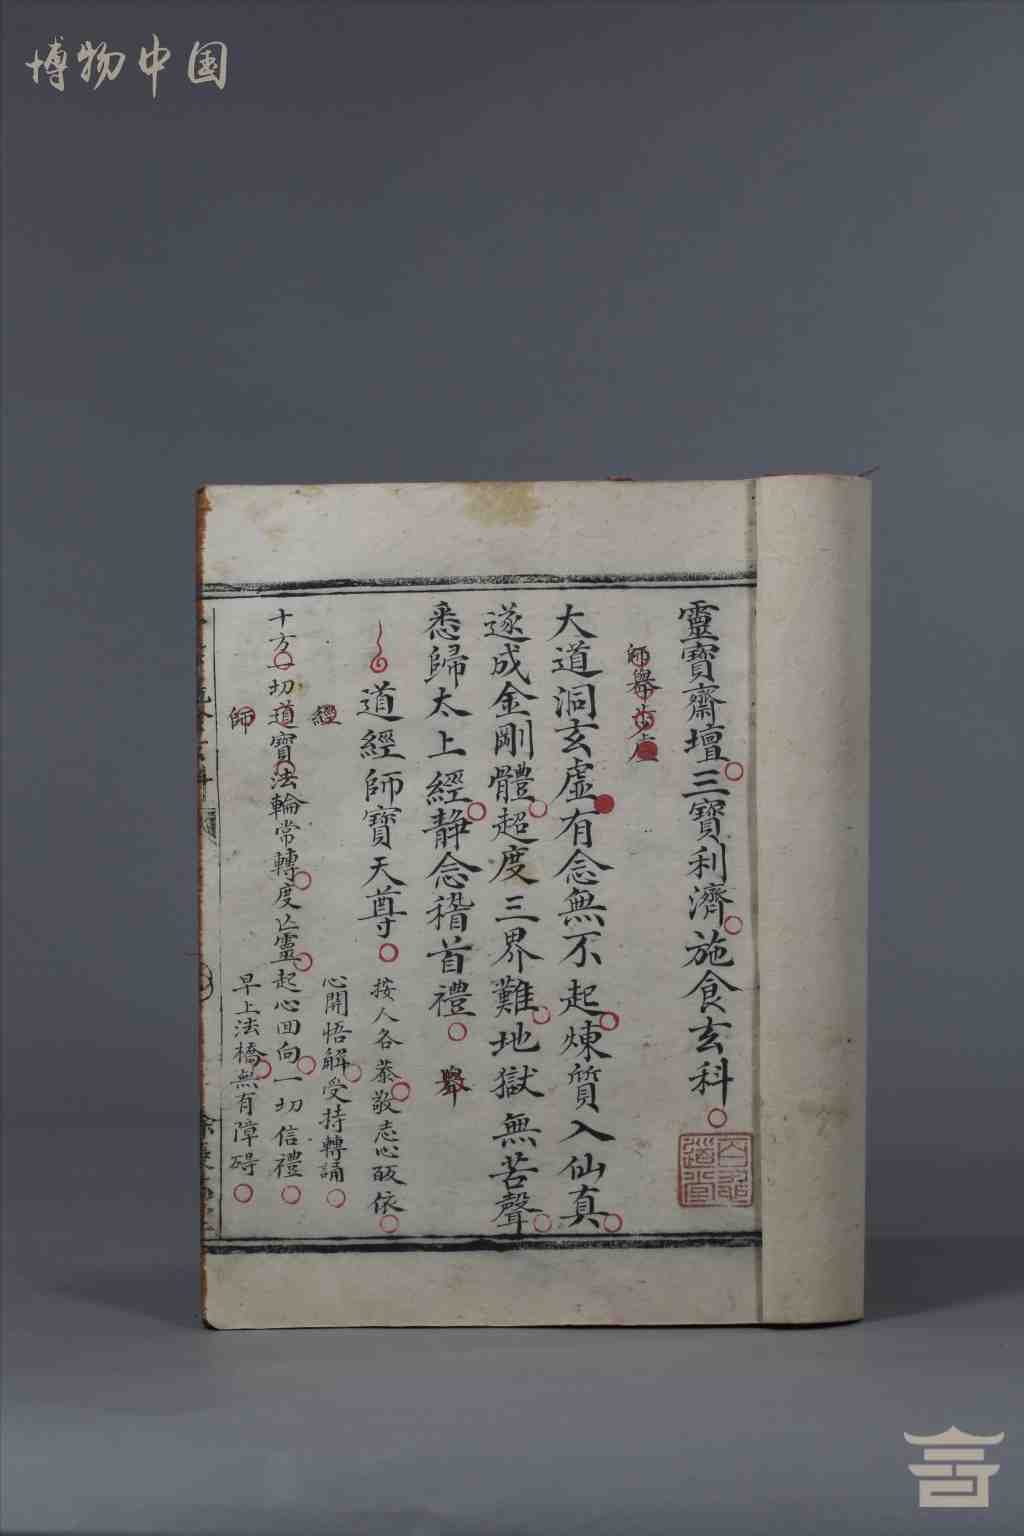 博物中国
靈寶齋壇三寶利濟施食玄科
師舉步虛
大道洞玄虛有念無不起煉質入仙真
遂成金剛體超度三界難地獄無苦聲
悉歸太上經静念稽首禮 舉
道經師寶天尊 按人各恭敬志心皈依
經 心開悟解受持轉誦
十方一切道寶法輪常轉度亡靈起心回向一切信禮
師 早上法橋無有障碍